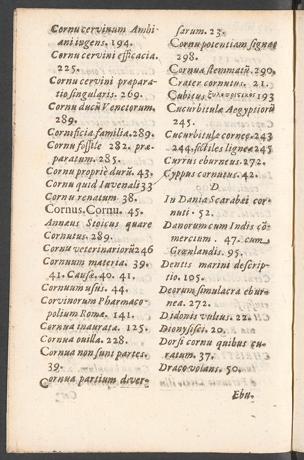 Cornu cervinum Ambi-
ani ingens. 194.
Cornu cervini efficacia.
225.
Cornu cervini prepara-
tio singularis. 269.
Cornu ducū Venetorum.
289.
Cornificia familia. 289.
Cornu fossile 282. præ-
paratum. 285.
Cornu propriè durū. 43.
Cornu quid Iuvenali 33
Cornu renatum 38.
Cornus, Cornu. 45.
Annæus Stoicus quare
Cornutus. 289.
Cornu veterinariorū 246
Cornuum materia. 39.
41. Causæ. 40. 41.
Cornuum usus. 44.
Corvinorum Pharmaco-
polium Romæ. 141.
Cornua inaurata. 125.
Cornua ovilla. 228.
Cornua non sunt partes.
39.
Cornua partium diver-
sarum. 23.
Cornu potentiam signat
298.
Cornua stemmatū. 290.
Crater cornutus. 21.
Cubitus 193
Cucurbitulæ Aegyptiorū
245.
Cucurbitulæ corneæ. 243
244. fictiles ligneæ 245
Currus eburneus. 272.
Cyppus cornutus. 42.
D
In Dania Scarabei cor-
nuti. 52.
Danorum cum Indis cō-
mercium. 47. cum
Gronlandis. 95.
Dentis marini descrip-
tio. 105.
Deorum simulacra ebur-
nea. 272.
Didonis vultus. 22.
Dionysisci. 20.
Dorsi cornu quibus cu-
ratum. 37.
Draco volans. 50.
Ebu-